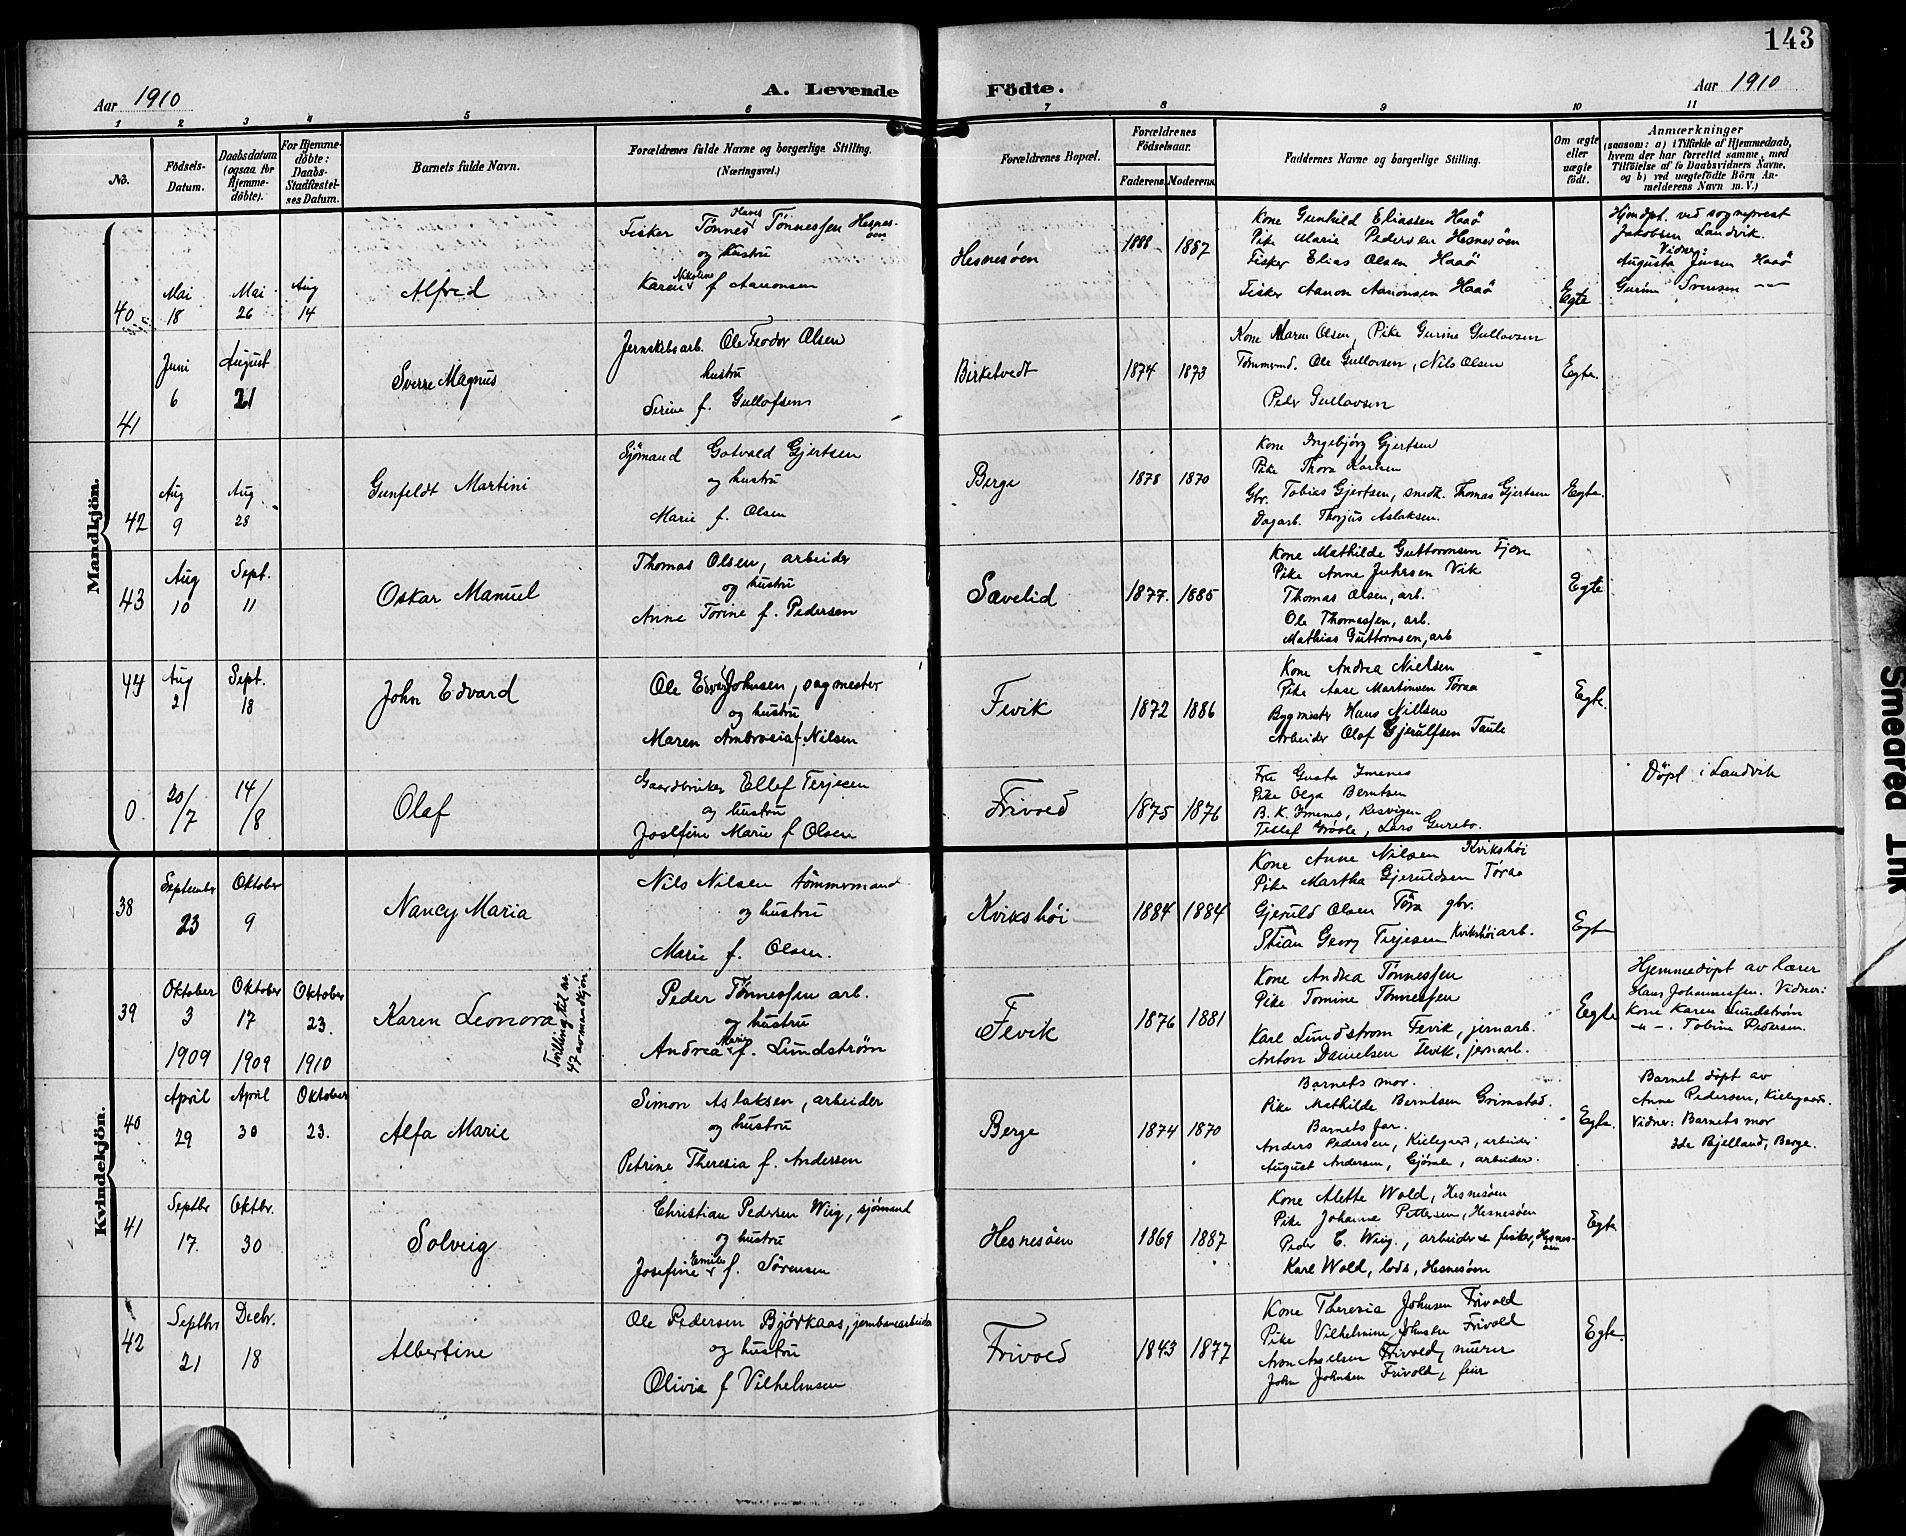 143
Aar 1910
A. Levende Fødte.
Aar 1910
1 2 3 4 5 6 7 8 9 10 11
No.
Fødsels-
Datum.
Daabsdatum
(ogsaa for
Hjemme-
døbte).
For Hjemme-
døbte:
Daabs-
Stadfæstel-
ses Datum.
Barnets fulde Navn.
Forældrenes fulde Navne og borgerlige Stilling.
(Næringsvei.)
Forældrenes Bopæl.
Forældrenes
Fødselsaar.
Faderens. Moderens.
Faddernes Navne og borgerlige Stilling.
Om ægte
eller
uægte
født.
Anmærkninger
(saasom: a) i Tilfælde af Hjemmedaab,
hvem der har forrettet samme, med
Tilføielse af to Daabsvidners Navne,
og b) ved uægtefødte Børn An-
melderens Navn m. V.)
Mandkjøn.
40
Mai
18
Mai
26
Aug
14
Alfred
Fisker Tønnes Tønnessen Hesnes-
øen
og hustru
Karen Nikoline f. Aanonsen
Hesnesøen
1888 1887
Kone Gunhild Eliassen Haaø
Pike Marie Pedersen Hesnesøen
Fisker Elias Olsen Haaø
Fisker Aanon Aanonsen Haaø
Egte
Hjmdpt. ved sogneprest
Jakobsen Landvik.
Vidner:
Augusta Jensen Haaø
Gurine Svensen — —
41
Juni
6
August
21
Sverre Magnus
Jernskibsarb. Ole Teodor Olsen
hustru
Serine f. Gullofsen
Birketvedt
1874 1873
Kone Maren Olsen, Pike Gurine Gullovsen
Tømmermd. Ole Gullovsen, Nils Olsen
Peder Gullovsen
Egte.
42
Aug
9
Aug
28
Gunfeldt Martini
Sjømand Gotvald Gjertsen
og hustru
Marie f. Olsen
Berge
1878 1870
Kone Ingebjørg Gjertsen
Pike Thora Karlsen
Gbr. Tobias Gjertsen, snedk. Thomas Gjertsen
Dagarb. Thorjus Aslaksen.
Egte.
43
Aug
10
Sept.
11
Oskar Manuel
Thomas Olsen, arbeider
og hustru
Anne Torine f. Pedersen
Sævelid
1877. 1885
Kone Mathilde Guttormsen Fjære
Pike Anne Juhrsen Vik
Thomas Olsen, arb.
Ole Thomassen, arb.
Mathias Guttormsen, arb
Egte
44
Aug
21
Sept.
18
John Edvard
Ole Edvard Johnsen, sagmester
og hustru
Maren Ambrosia f. Nilsen
Fevik
1872 1886
Kone Andrea Nielsen
Pike Aase Martinsen Tøraa
Bygmester Hans Nielsen
Arbeider Olaf Gjerulfsen Taule
Egte.
0.
20/7
14/8
Olaf
Gaardbruker Ellef Terjesen
og hustru
Josefine Marie f Olsen
Frivold
1875 1876
Fru Gusta Imenes
Pike Olga Berntsen
B. K. Imenes, Resvigen
Tellef Grøole, Lars Gurebo.
Døpt i Landvik
Kvindekjøn.
38
September
23
Oktober
9
Nancy Maria
Nils Nilsen tømmermand
og hustru
Marie f. Olsen.
Kvikshøi
1884 1884
Kone Anne Nilsen Kvikshøi
Pike Martha Gjeruldsen Tøraa
Gjeruld Olsen Tøra gbr.
Stian Georg Terjesen Kvikshøi arb.
Egte
39
Oktober
3
Oktober
17
Oktober
23.
Karen Leonora
Tvilling til nr.
47 av mandkjøn.
Peder Tønnessen arb.
og hustru
Andrea Marie f. Lundstrøm
Fevik
1876 1881
Kone Andrea Tønnessen
Pike Tomine Tønnessen
Karl Lundstrøm Fevik, jernarb.
Anton Danielsen Fevik, jernarb.
Egte
Hjemmedøpt av lærer
Hans Johannessen. Vidner:
Kone Karen Lundstrøm
—"—. Tobine Pedersen.
40
1909
April
29
1909
April
30
1910
Oktober
23.
Alfa Marie
Simon Aslaksen, arbeider
og hustru
Petrine Theresia f. Andersen
Berge
1874 1870
Barnets mor.
Pike Mathilde Berntsen Grimstad.
Barnets far.
Anders Pedersen, Kielegaard, arbeider
August Andersen, Gjømle, arbeider.
Egte.
Barnet døpt av
Anne Pedersen, Kielegaard.
Vidner: Barnets mor
Ida Bjelland, Berge.
41
Septbr
17.
Oktbr.
30
Solveig
Christian Pedersen Wiig, sjømand
og hustru
Josefine Emilie f. Sørensen
Hesnesøen
1869 1887
Kone Alette Wold, Hesnesøen
Pike Johanne Pettersen, Hesnesøen
Peder C. Wiig, arbeider & fisker, Hesnes-
øen
Karl Wold, lods, Hesnesøen
Egte
42
Septbr
21
Decbr.
18
Albertine
Ole Pedersen Bjørkaas, jernbanearbeider
og hustru
Olivia f Vilhelmsen
Frivold
1843 1877
Kone Theresia Johnsen Frivold
Pike Vilhelmine Johnsen Frivold
Aron Axelsen Frivold, murer
John Johnsen Frivold, feier
Egte.
Smeared Ink